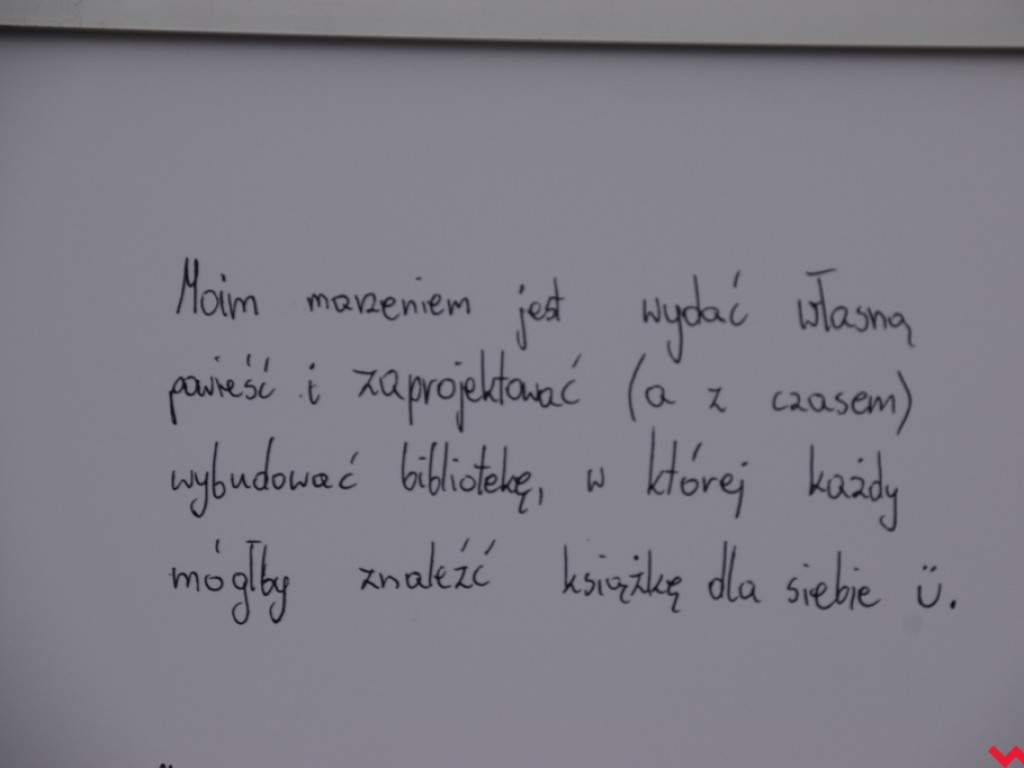 Moim marzeniem jest wydać własną
powieść i zaprojektować (a z czasem)
wybudować bibliotekę, w której każdy
mógłby znaleźć książkę dla siebie ü.